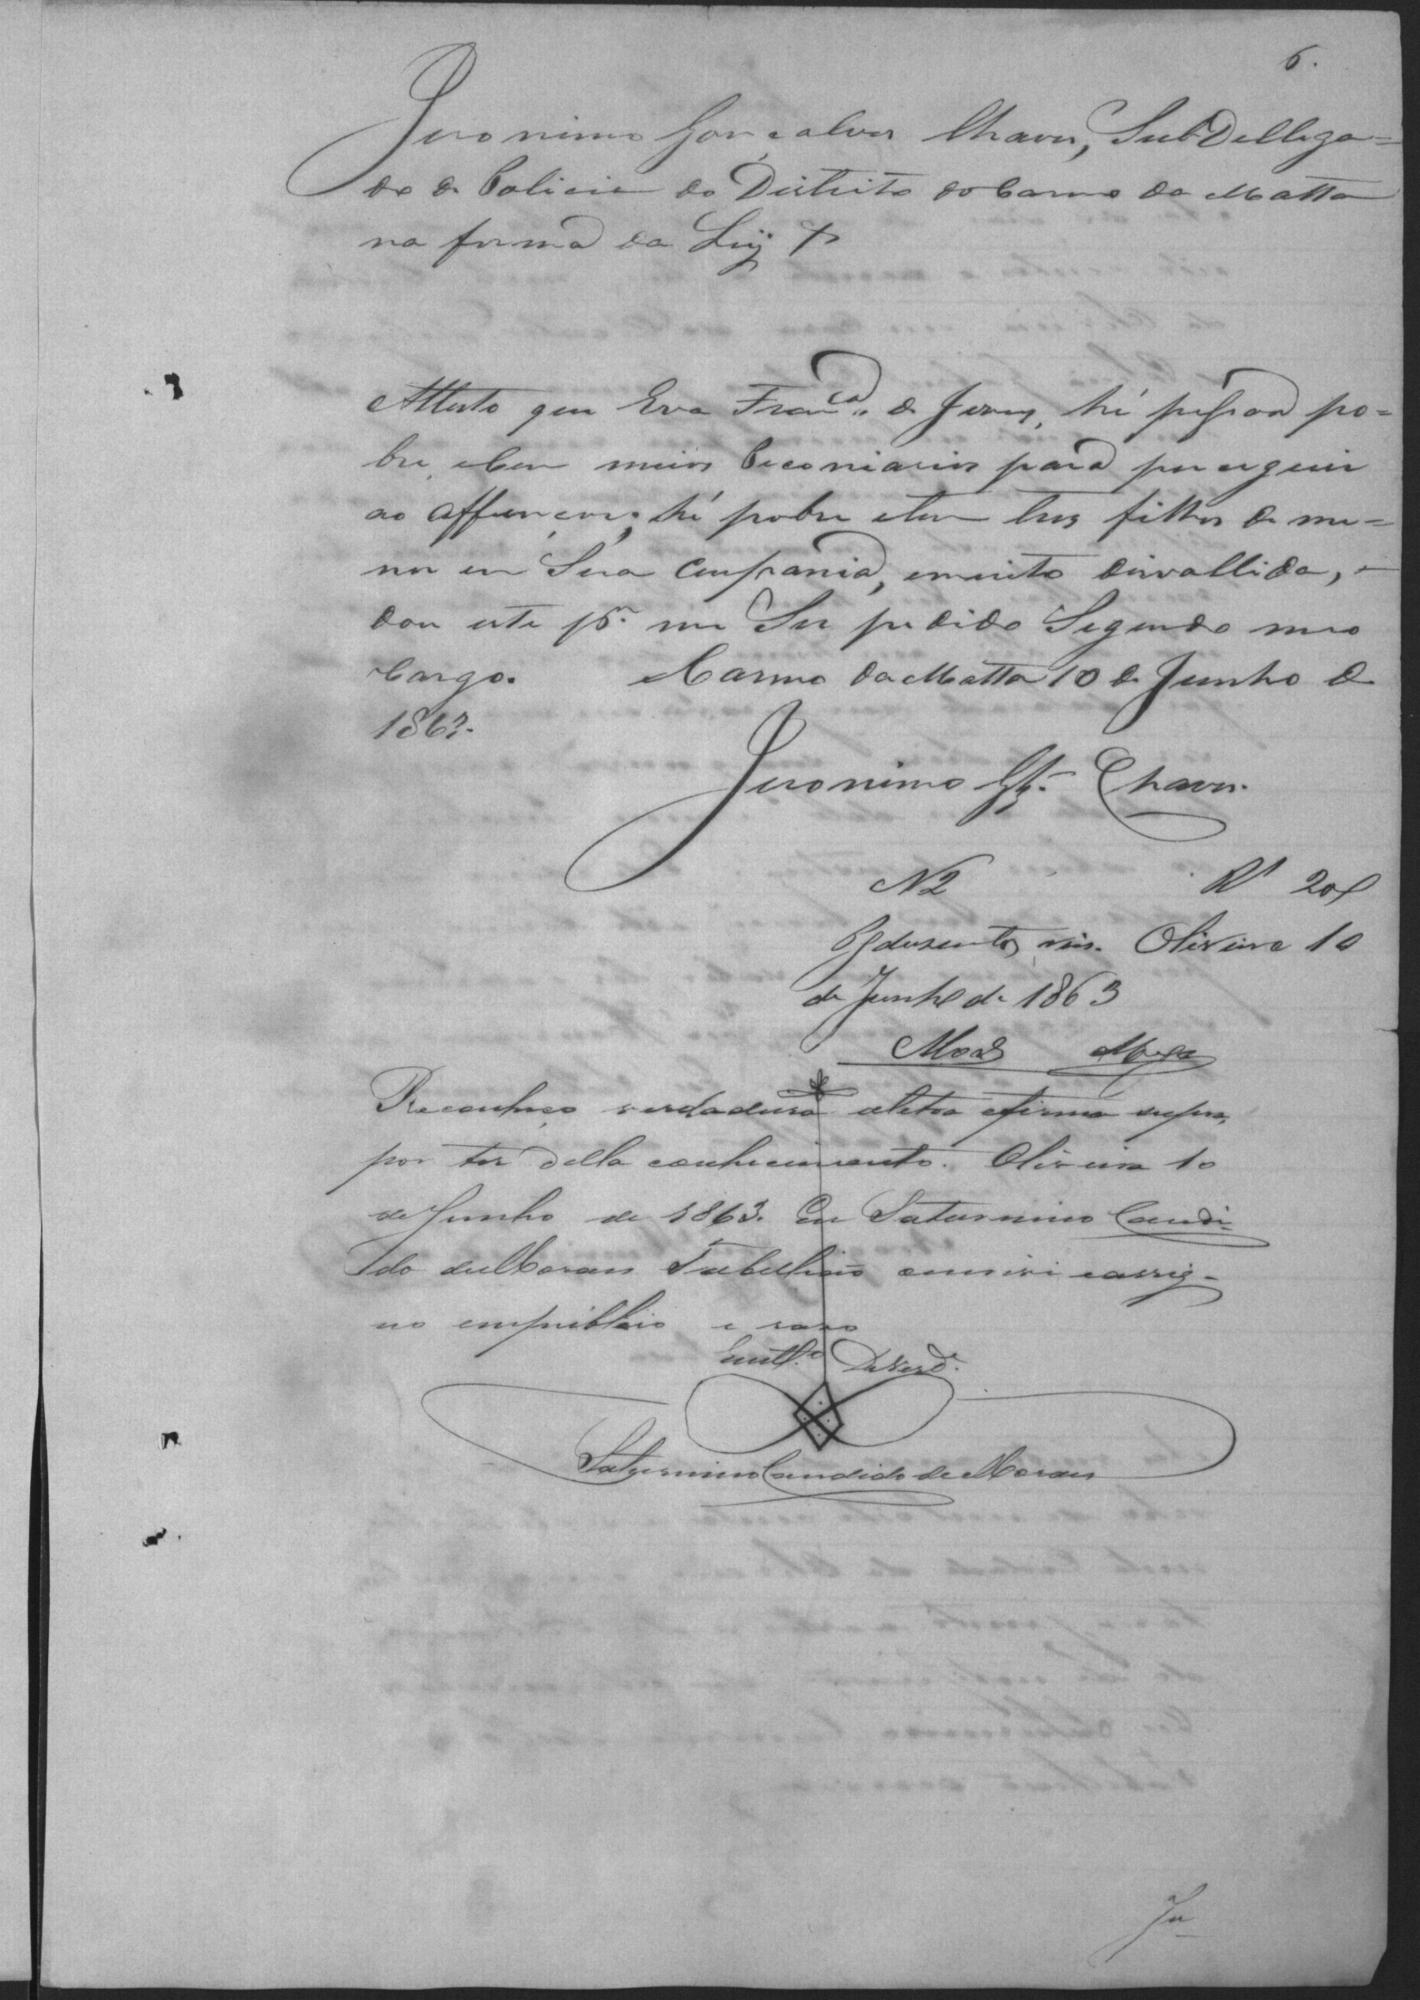 6.
Jeronimo Gonçalves Chaves, SubDellega=
do de Policia do Districto do Carmo da Matta
na forma da Ley &
Attesto que Eva Fran.ca de Jesus, hé pessoa po=
bre, e sem meios Peconiarios para perseguir
ao offençor; hé pobre e tem tres filhos de me=
nor em Sua Companhia, e muito disvallida, e
dou este p.r me Ser pedido Segundo meo
Cargo. Carmo da Matta 10 de Junho de
1863.
Jeronimo Glz. Chaves.
N 2 Rs 200
Pg duzentos reis. Oliveira 10
de Junho de 1863
Reconheço verdadeira a letra e firma supra,
por ter della conhecimento. Oliveira 10
de Junho de 1863. Eu Saturnino Candi-
do de Moraes Tabellião escrevi e assig-
no em publico e raso
Em test.o da verd.e
Saturnino Candido de Moraes